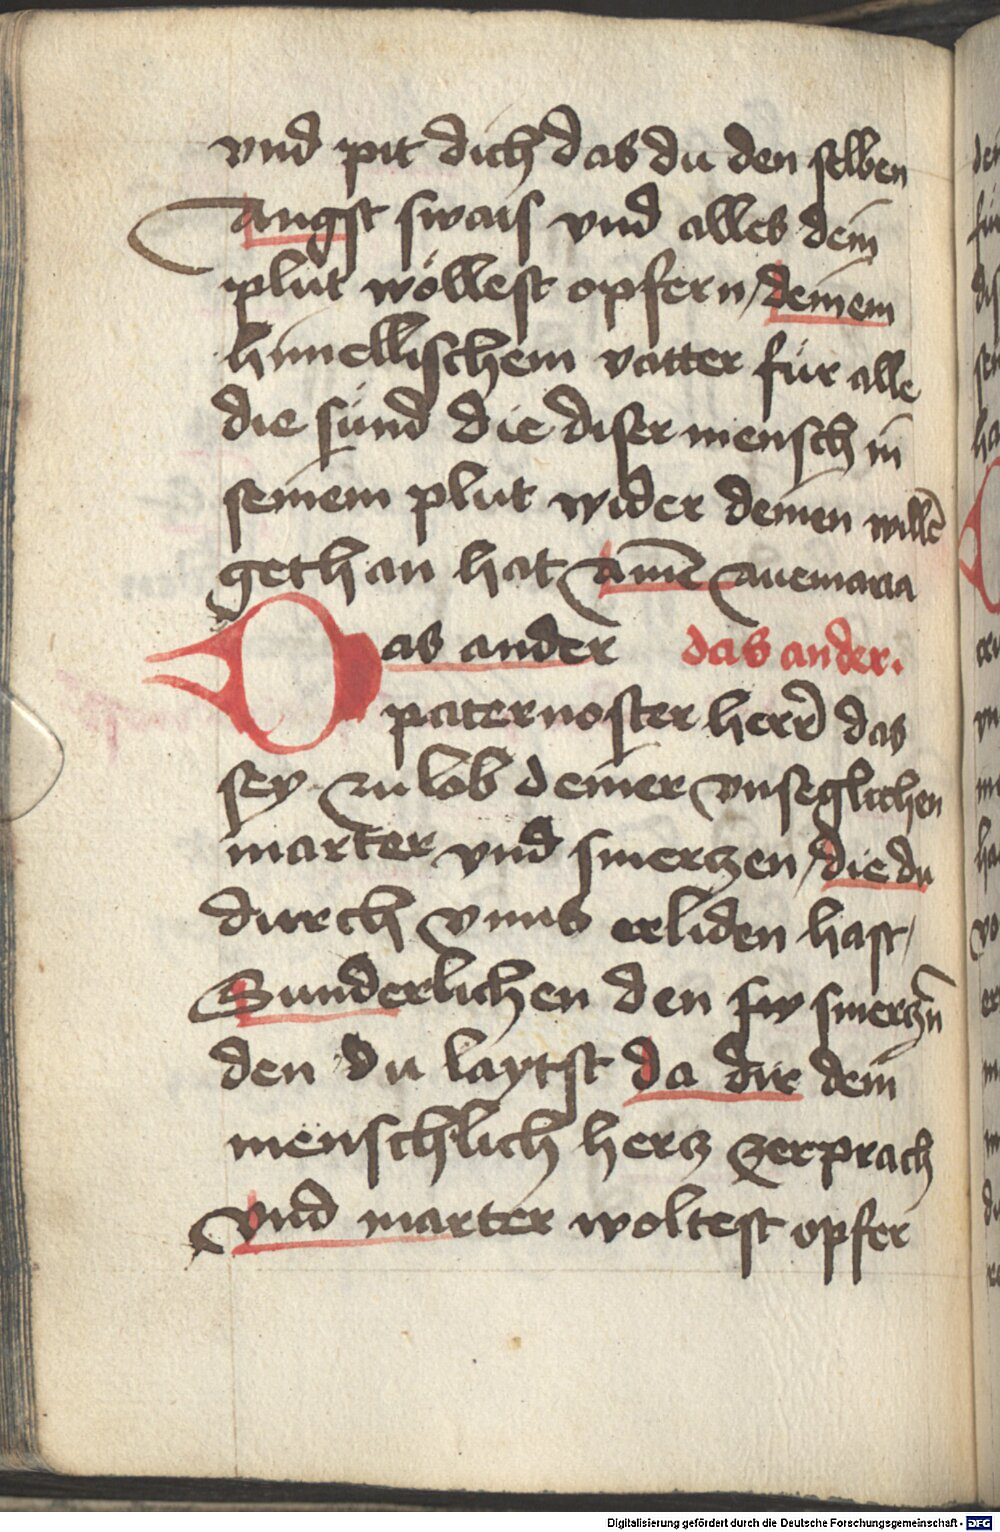 vnd pit dich das du den selben
Angst swais vnd alles dein
plut wöllest opfern / deinem
himellischem vatter für alle
die sünd die diser mensch in
seinem plut wider deinen willē
gethan hat Amē Auemaria
Das ander das ander.
paternoster herr das
sey zu lob deiner vnseglichen
marter vnd smerczen / die du
durch vnns erliden hast /
Sunderlichen den smerczn
den du laytst da dir dein
menschlich hercz zerprach
vnd marter woltest opfer
Digitalisierung gefördert durch die Deutsche Forschungsgemeinschaft - DFG